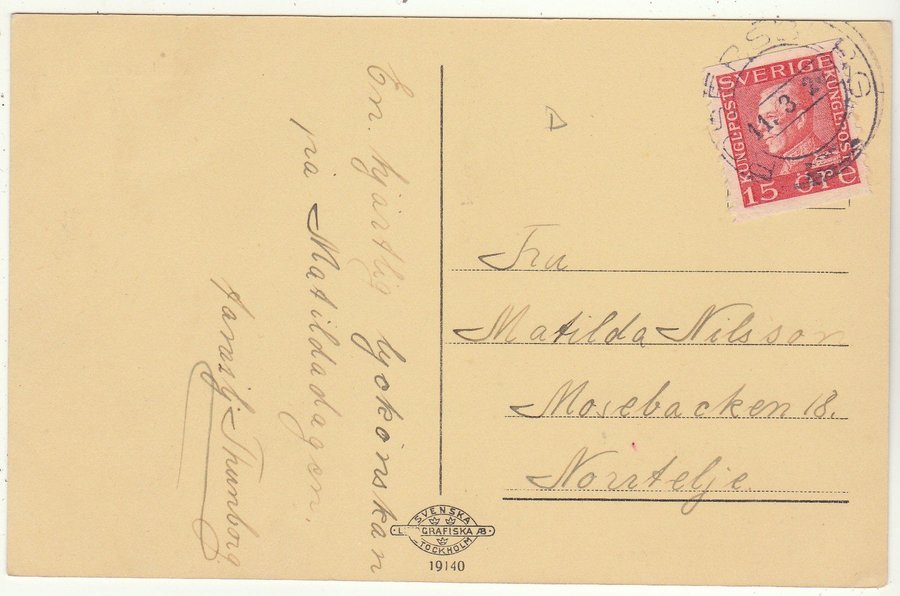 En. hjärtlig lyckönskan
på Matildadagen.
Thunborg.
SVERIGE
KUNGL:POST
KUNGL:POST
15 ÖRE
11. 3. 2
Fru
Matilda Nilsson
Mosebacken 18.
Norrtelje
SVENSKA
LITOGRAFISKA AB
STOCKHOLM
19140